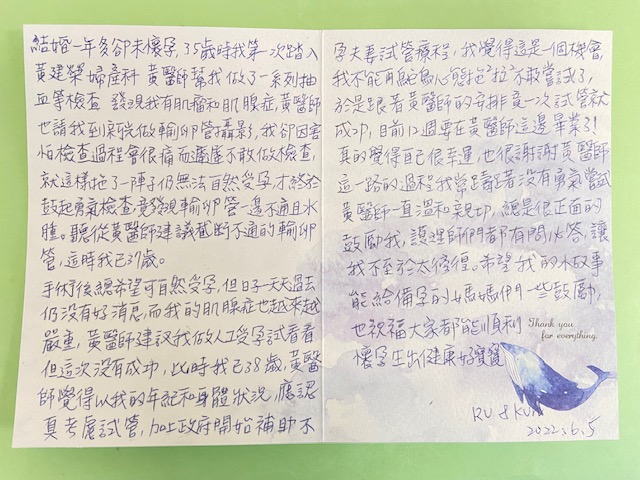 結婚一年多卻未懷孕,35歲時我第一次踏入
黃建榮婦產科 黃醫師幫我做了一系列抽
血等檢查 發現我有肌瘤和肌腺症,黃醫師
也請我到宸恍做輸卵管攝影,我卻因害
怕檢查過程會很痛而遲遲不敢做檢查,
就這樣拖了一陣子仍無法自然受孕才終於
鼓起勇氣檢查,竟發現輸卵管一邊不通且水
腫。聽從黃醫師建議截斷不通的輸卵
管,這時我已37歲。
手術後總希望可自然受孕,但日子一天天過去
仍沒有好消息,而我的肌腺症也越來越
嚴重,黃醫師建議我做人工受孕試看看
但這次沒有成功,此時我已38歲,黃醫
師覺得以我的年紀和身體狀況,應認
真考慮試管,加上政府開始補助不
孕夫妻試管療程,我覺得這是一個機會,
我不能再鴕鳥心態拉不敢嘗試了,
於是跟著黃醫師的安排竟一次試管就
成功,目前12週要在黃醫師這邊畢業了!
真的覺得自己很幸運,也很謝謝黃醫師
這一路的過程我當躊躇著沒有勇氣嘗試
黃醫師一直溫和親切,總是很正面的
鼓勵我,護理師們都有問必答,讓
我不至於太徬徨。希望我的小故事
能給備孕的媽媽們一些鼓勵,
也祝福大家都能順利
懷孕生出健康好寶寶
Thank you
for everything.
RU & KUN
2022.6.5